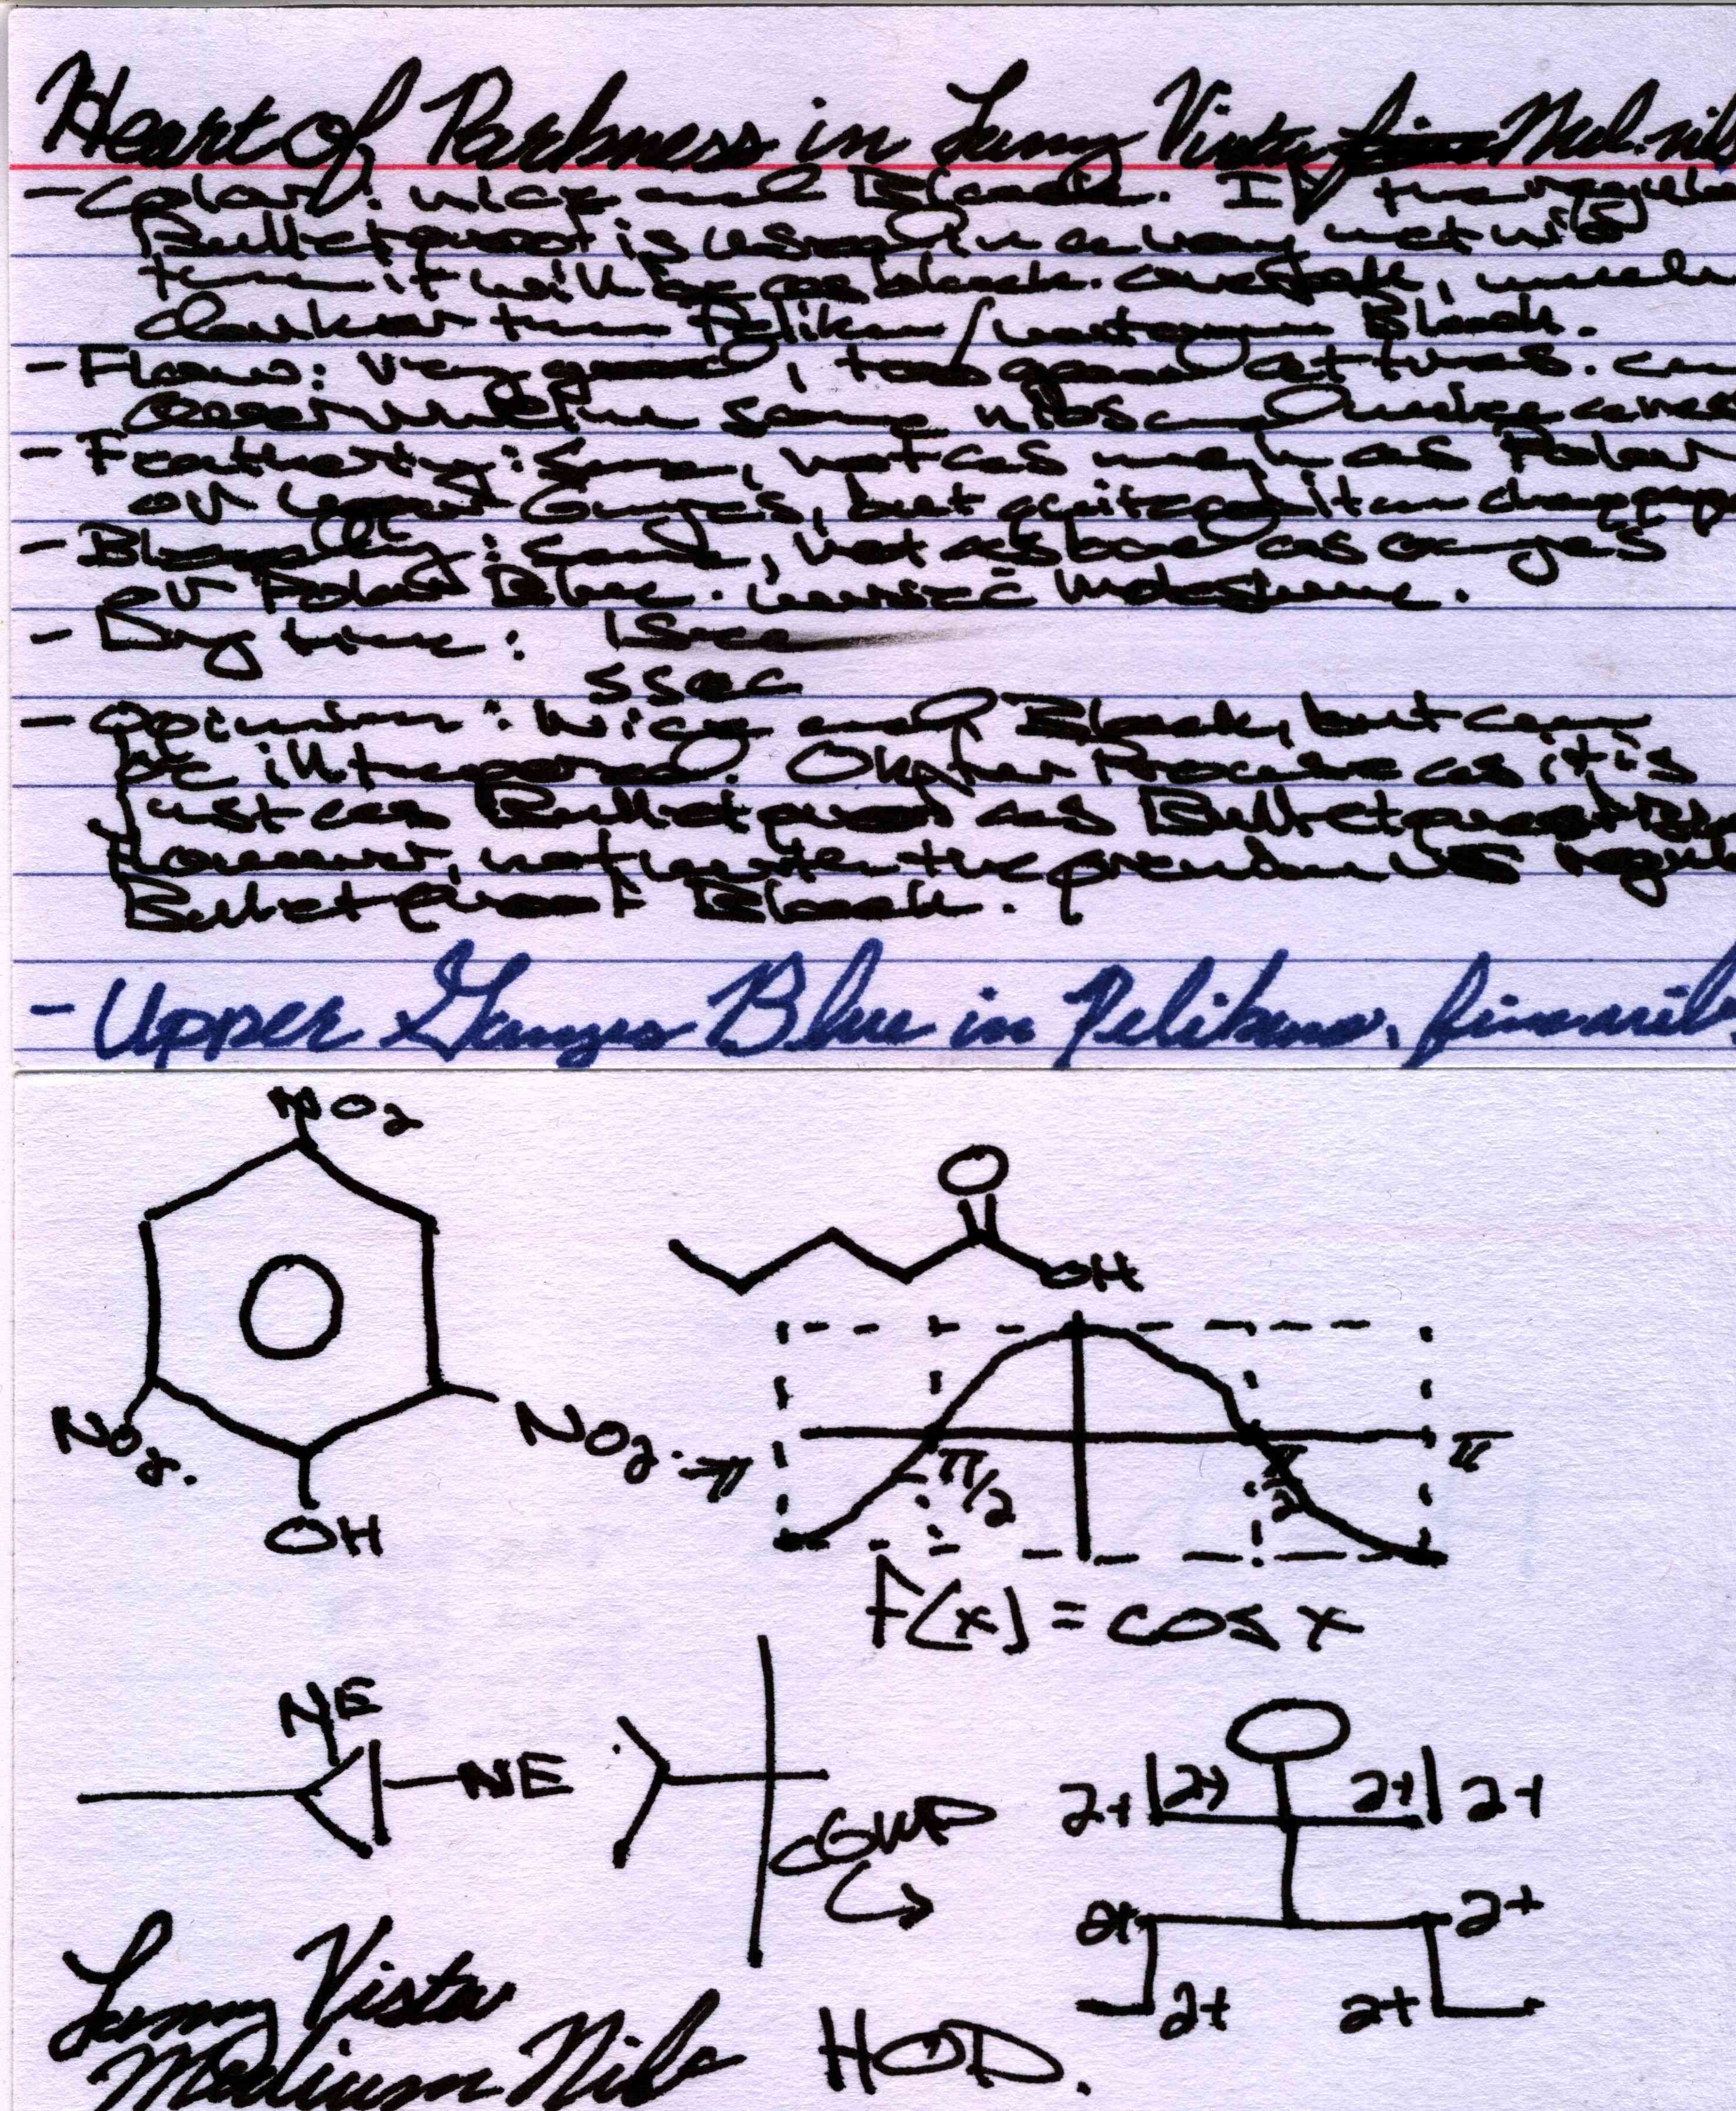 Heart of Darkness in Lamy Vista Med. nib
- Color: nice and Black. If the regular
Bulletproof is used in a very wet nib
then it will be as black. overall, much
darker than Pelikan / Waterman Black.
- Flow: very good, too good at times. can
some nibs and make
- Feathering: some, not as much as Polar
or Upper Ganges, but quite a bit on cheap
- Bleeding: some, not as bad as Ganges
or Polar Blue.
- Dry time: 1 sec
5 sec
- Opinion: Nice and Black, but can
be ill tempered. Ok for as it is
just as Bulletproof as Bulletproof
However, not worth the premium vs
Bulletproof Black.
- Upper Ganges Blue in Pelikano, fine nib
NO2
O
OH
NO2.
NO2.
OH
-π
-π/2
π/2
π
F(x) = cos x
NE
NE
cGMP
2+ 2+ 2+ 2+
2+ 2+
2+ 2+
Lamy Vista
Medium Nib
HOD.